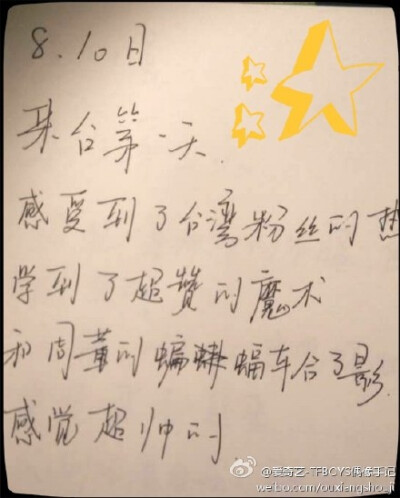 8.10日
来台第一天.
感受到了台湾粉丝的热
学到了超赞的魔术
和周董的蝙蝠车合了影.
感觉超帅的
@爱奇艺-TFBOYS偶像手记
weibo.com/ouxiangsho